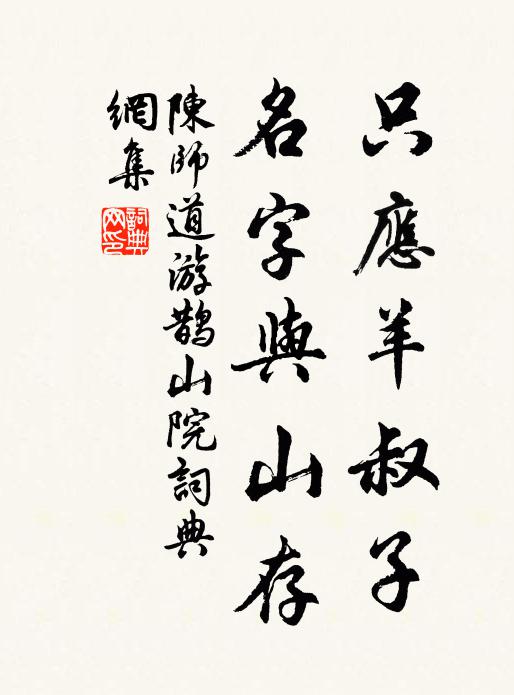 只應羊叔子
名字與山存
陳師道游鵲山院詞典
網集
詞典网印